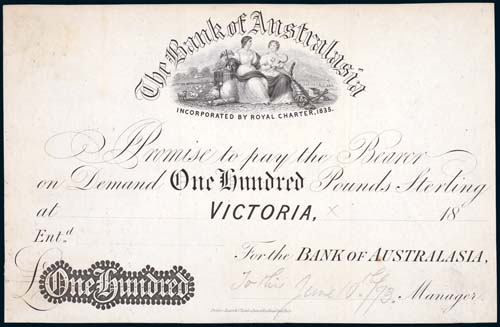 The Bank of Australasia
INCORPORATED BY ROYAL CHARTER, 1835.
I Promise to pay the Bearer
on Demand One Hundred Pounds Sterling
at VICTORIA, x 18
Ent.d
For the BANK OF AUSTRALASIA,
£ One Hundred
June 93. Manager